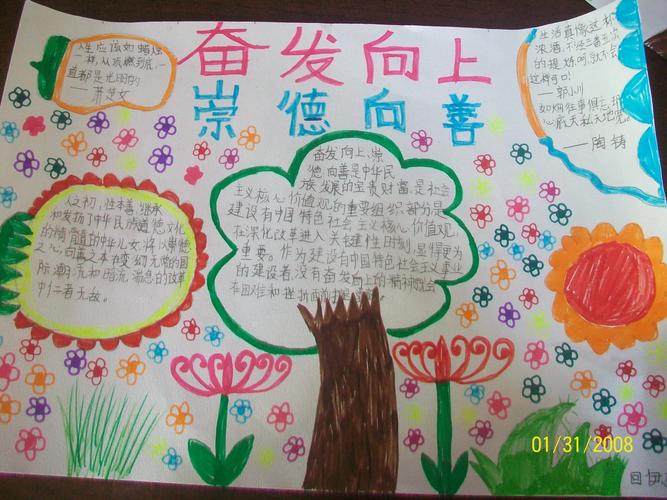 奋发向上
崇德向善
人生应该如蜡烛
一样,从顶燃到底,一
直都是光明的
——萧楚女
生活真像这杯
浓酒,不经三番五次
的提炼呵,就不会
这样可口!
——郭小川
如烟往事俱忘却
心底无私天地宽
——陶铸
奋发向上、崇
德向善是中华民
族发展的宝贵财富是社会
主义核心价值观的重要组织部分是
建设有中国特色社会主义核心价值观,
在深化改革进入关键性时刻,显得更为
重要。作为建设有中国特色社会主义事业
的建设者没有奋发向上的精神就会
在困难和挫折面前
人之初,性本善继承
和发扬了中华民族道德文化
的精 的中华儿女将以崇德
之心向善之本在变幻无常的国
际潮流和暗流湍息的改革
中仁者无敌。
01/31/2008